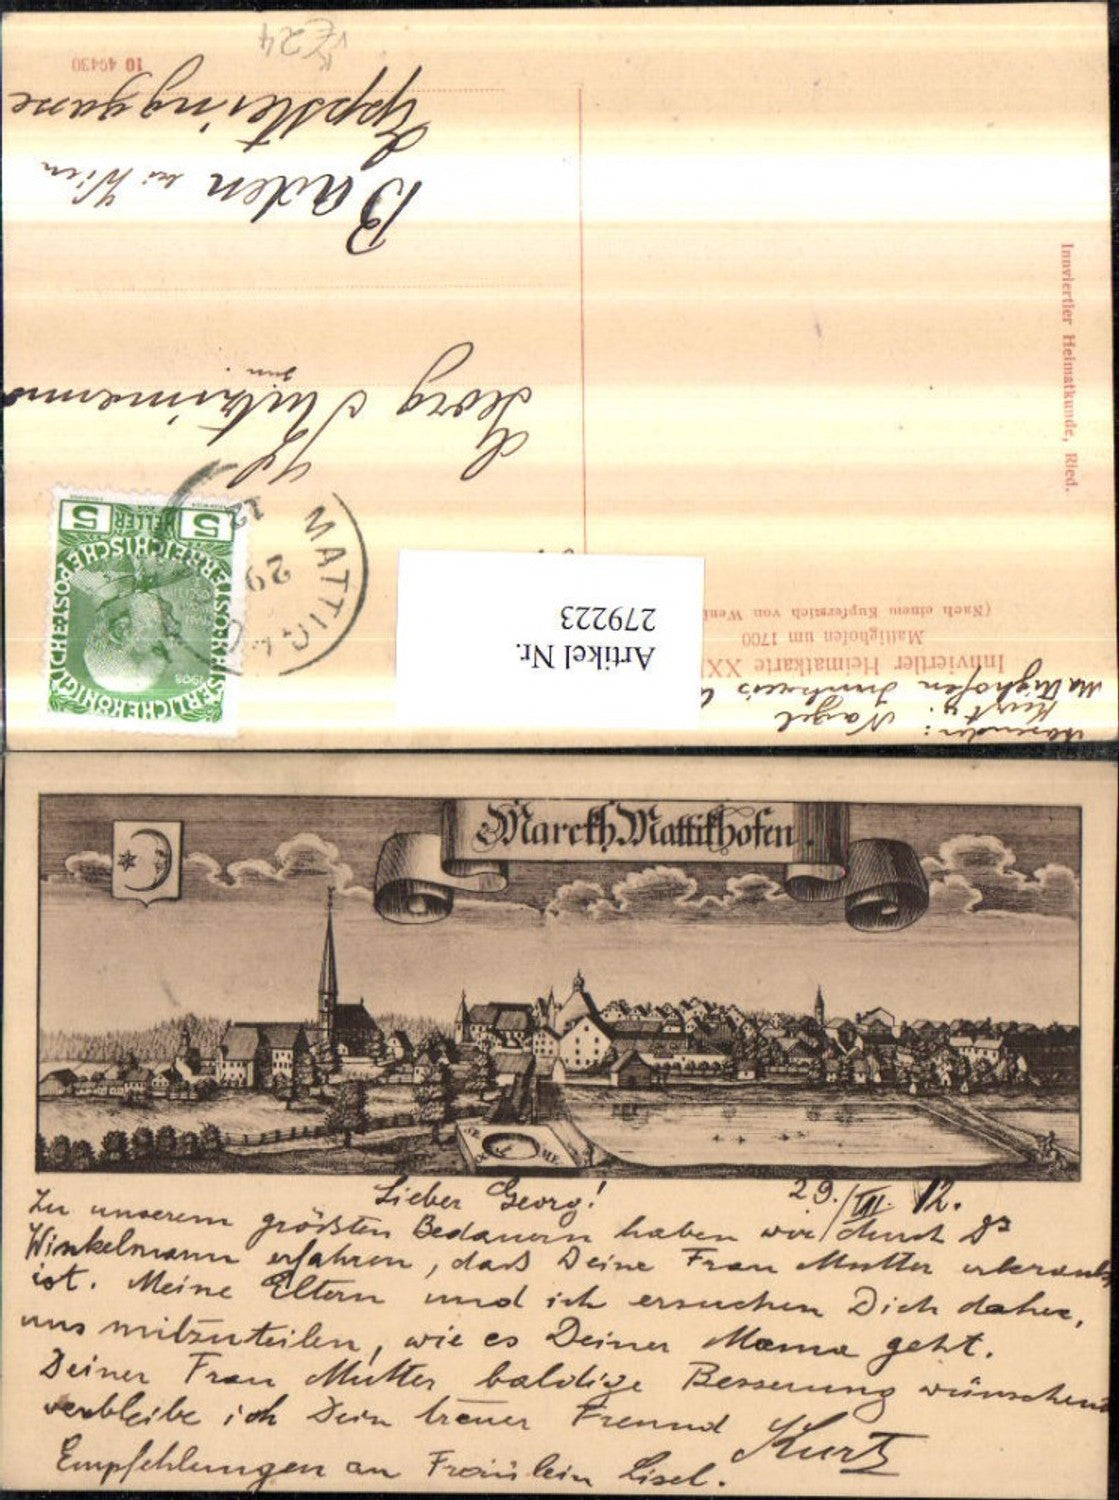 Innviertler Heimatkarte XX
Mattighofen um 1700
(Nach einem Kupferstich von
Innviertler Heimatkunde, Ried.
10 46430
24
Nagel
Kurt
Mattighofen
Georg
jun.
Baden bei Wien
Eppsteinggasse
MATTIG
29
12
5 HELLER 5
KAISERLICHE KÖNIGLICHE ÖSTERREICHISCHE POST
1908
Artikel Nr.
279223
Marckh Mattikhofen.
Lieber Georg! 29./VII. 12.
Zu unserem größten Bedauern haben wir durch
Winkelmann erfahren, dass Deine Frau Mutter erkrankt
ist. Meine Eltern und ich ersuchen Dich daher,
uns mitzuteilen, wie es Deiner Mama geht.
Deiner Frau Mutter baldige Besserung wünschend
verbleibe ich Dein treuer Freund Kurt
Empfehlungen an Fräulein Lisel.